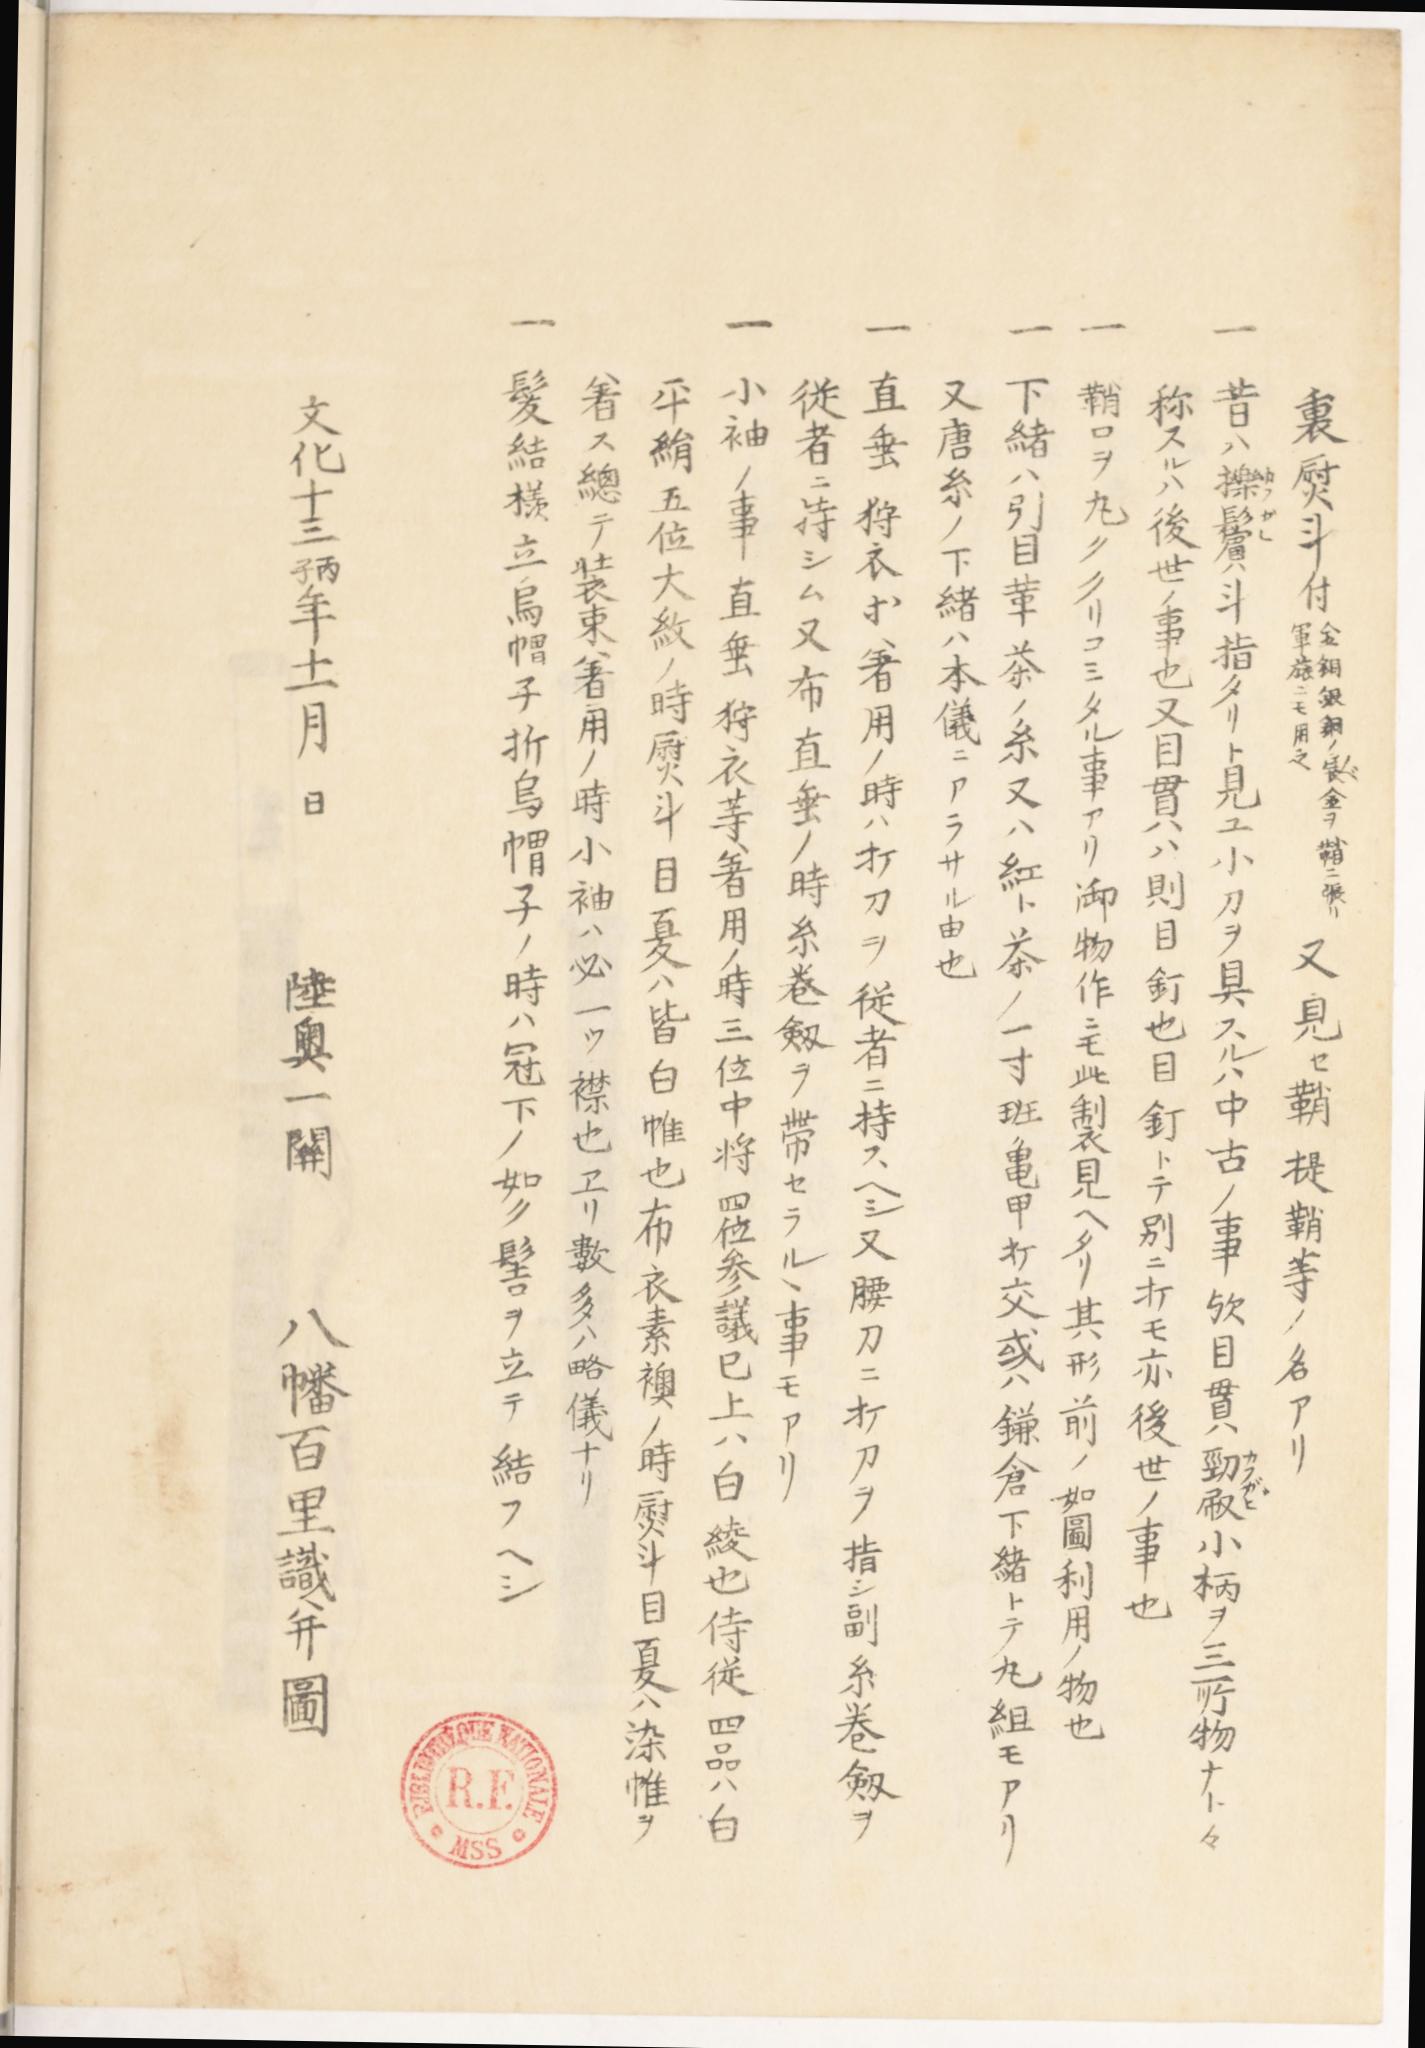 裏熨斗付 金銅銀銅ノ裏金ヲ鞘ニ張リ軍旅ニモ用之 又見セ鞘提鞘等ノ名アリ
一 昔ハ掻鬢ハ斗指タリト見ユ小刀ヲ具スルハ中古ノ事欤目貫ハ小柄ヲ三所物ナト々
称スルハ後世ノ事也又目貫ハハ則目釘也目釘トテ別ニ打モ亦後世ノ事也
一 鞘口ヲ丸クククリコミタル事アリ御物作ニモ此製見ヘタリ其形前ノ如圖利用ノ物也
一 下緒ハ引目革茶ノ糸又ハ紅ト茶ノ一寸班亀甲打交或ハ鎌倉下緒トテ丸組モアリ
又唐糸ノ下緒ハ本儀ニアラサル由也
一 直垂狩衣ホ著用ノ時ハ打刀ヲ従者ニ持スヘシ又腰刀ニ打刀ヲ指シ副糸巻劔ヲ
従者ニ持シム又布直垂ノ時糸巻劔ヲ帶セラルヽ事モアリ
一 小袖ノ事直垂狩衣等著用ノ時三位中将四位参議已上ハ白綾也侍従四品ハ白
平絹五位大紋ノ時熨斗目夏ハ皆白帷也布衣素襖ノ時熨斗目夏ハ染帷ヲ
著ス總テ装束著用ノ時小袖ハ必一ツ襟也ヱリ數多ハ略儀ナリ
一 髪結樣立烏帽子折烏帽子ノ時ハ冠下ノ如ク髻ヲ立テ結フヘシ
文化十三丙子年十一月 日 陸奥一關 八幡百里識并圖
BIBLIOTHÈQUE NATIONALE
R.F.
MSS